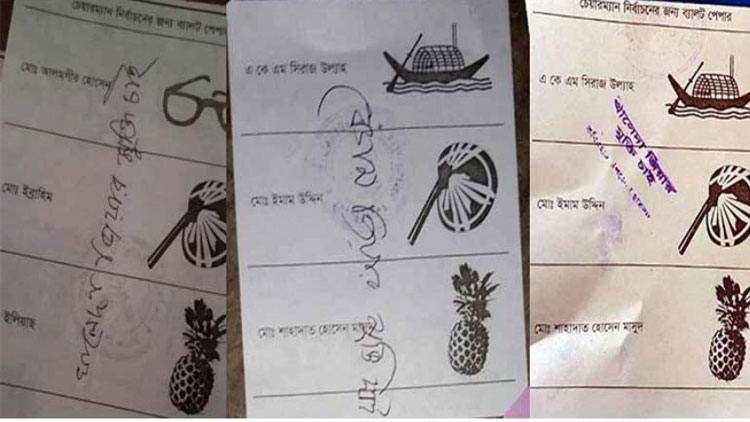 চেয়ারম্যান নির্বাচনের জন্য ব্যালট পেপার
মোঃ আলমগীর হোসেন
মোঃ ইব্রাহিম
ইলিয়াছ
খালেদা জিয়ার মুক্তি চাই
এ কে এম সিরাজ উল্যাহ
মোঃ ইমাম উদ্দিন
মোঃ শাহাদাত হোসেন মাসুদ
চেয়ারম্যান নির্বাচনের জন্য ব্যালট পেপার
এ কে এম সিরাজ উল্যাহ
খালেদা জিয়ার
মুক্তি চাই
মোঃ ইমাম উদ্দিন
মোঃ শাহাদাত হোসেন মাসুদ